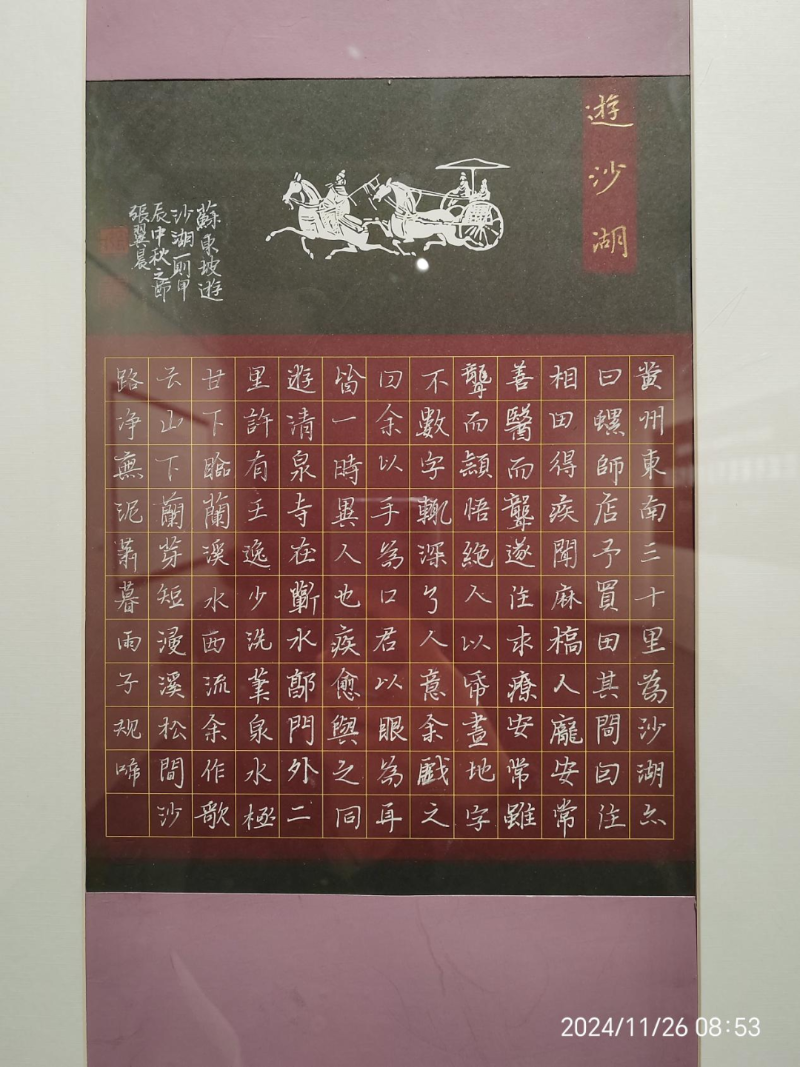 遊沙湖
黄州東南三十里為沙湖亦
曰螺師店予買田其間因往
相田得疾聞麻橋人龐安常
善醫而聾遂往求療安常雖
聾而穎悟絕人以帋畫地字
不數字輒深了人意余戲之
曰余以手為口君以眼為耳
皆一時異人也疾愈與之同
遊清泉寺在蘄水郭門外二
里許有王逸少洗筆泉水極
甘下臨蘭溪水西流余作歌
云山下蘭芽短浸溪松間沙
路净無泥蕭暮雨子規啼
蘇東坡遊
沙湖一則甲
辰中秋之節
張翼晨
2024/11/26 08:53